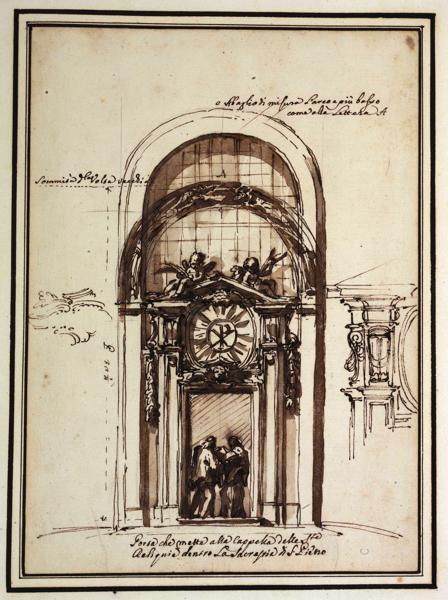 o Sbaglio di misura l'arco a più basso
come alla Lettera A
A
Sommità d.la Volta
Porta che mette alla Cappella delle S.te
Reliquie dentro La Sacrestia di S. Pietro